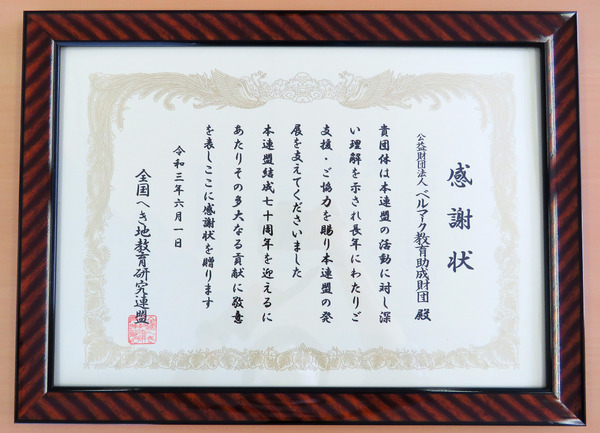 感謝状
公益財団法人 ベルマーク教育助成財団 殿
貴団体は本連盟の活動に対し深
い理解を示され長年にわたりご
支援・ご協力を賜り本連盟の発
展を支えてくださいました
本連盟結成七十周年を迎えるに
あたりその多大なる貢献に敬意
を表しここに感謝状を贈ります
令和三年六月一日
全国へき地教育研究連盟